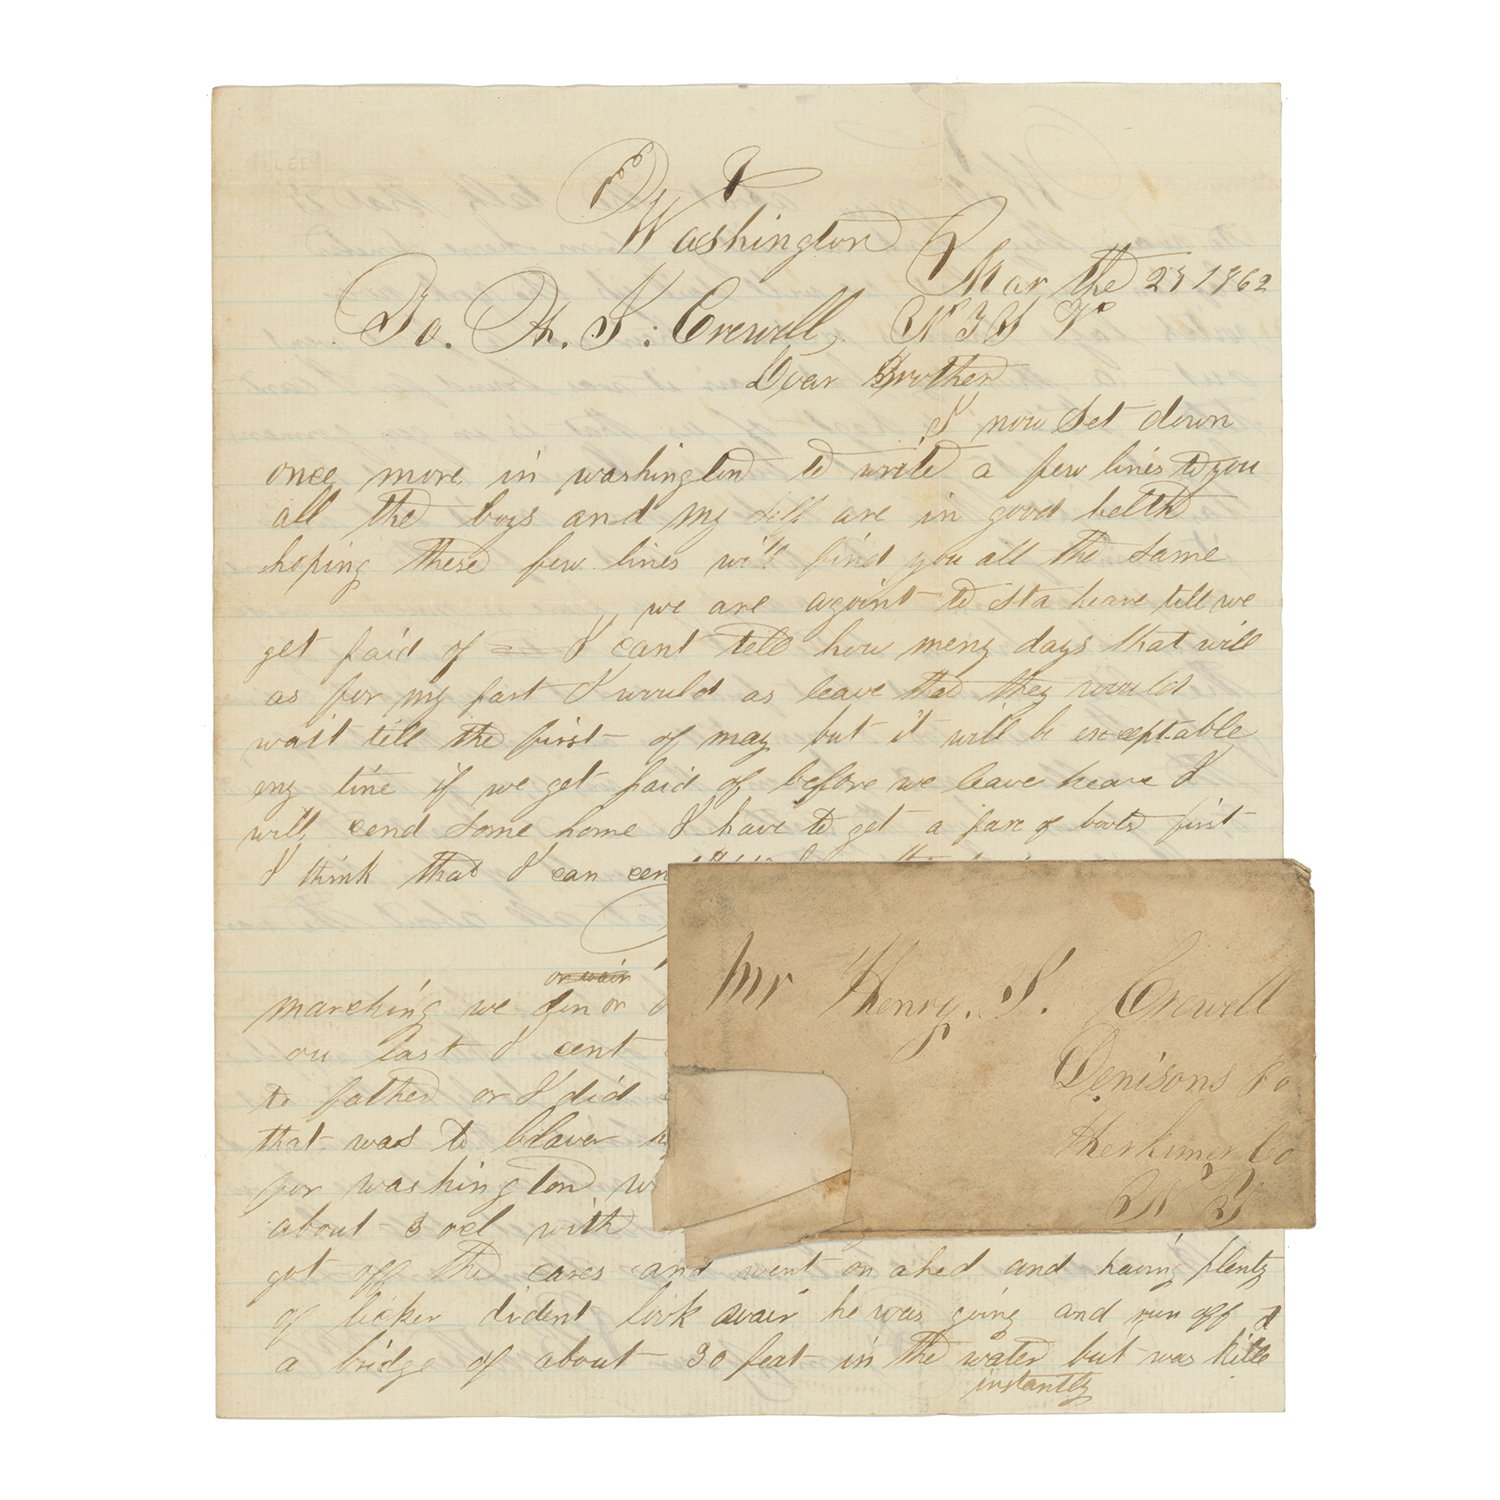 Washington
Mar the 27 1862
To. H. S. Crewell,
Dear Brother
I now Set down
once more in washington to write a few lines to you
all the boys and my self are in good helth
hoping these few lines will find you all the same
we are agoint to sta heare till we
get paid of I cant tell how meny days that will
as for my part I would as leave that they would
wait till the first of may but it will be exceptable
eny time if we get paid of before we leave heare I
will cend some home I have to get a pare of boots first
I think that I can cen
marching we
on last I cent
to father or I did
that was to
for washington
about 3 ocl with
got off the cares and went on ahed and having plenty
of licker dident look wair he was going and run off
a bridge of about 30 feat in the water but was kille d
instantly
Mr Henry. S. Crewell
Denisons Po
Herkimer Co
N Y